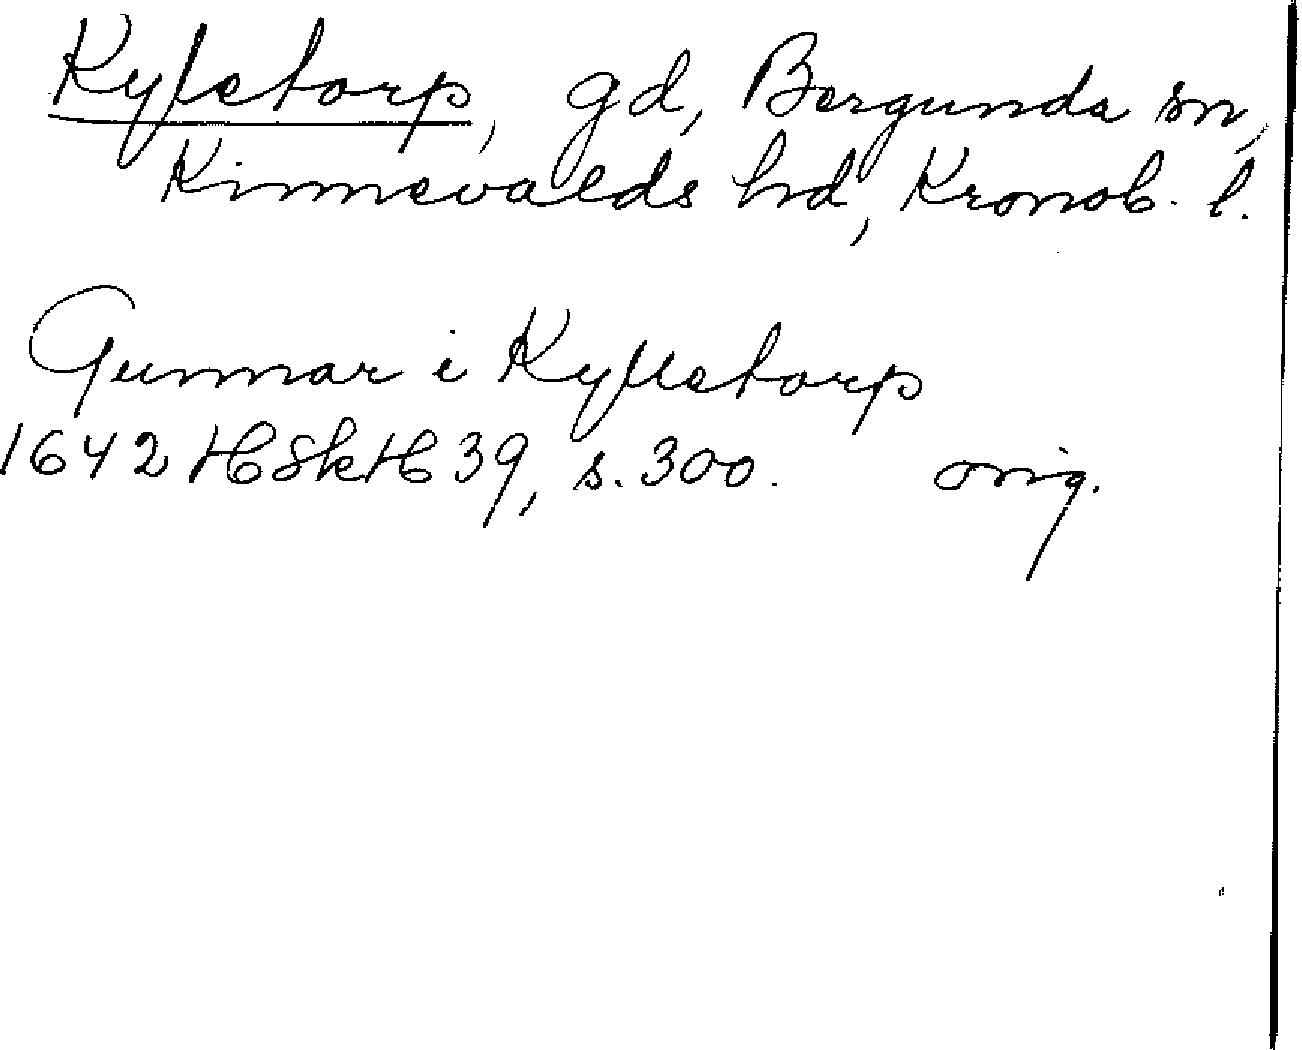 Kyletorp, gd, Bergunda sn,
Kinnevalds hd, Kronob. l.
Gunnar i Kylletorp
1642 HSkH 39, s. 300. orig.